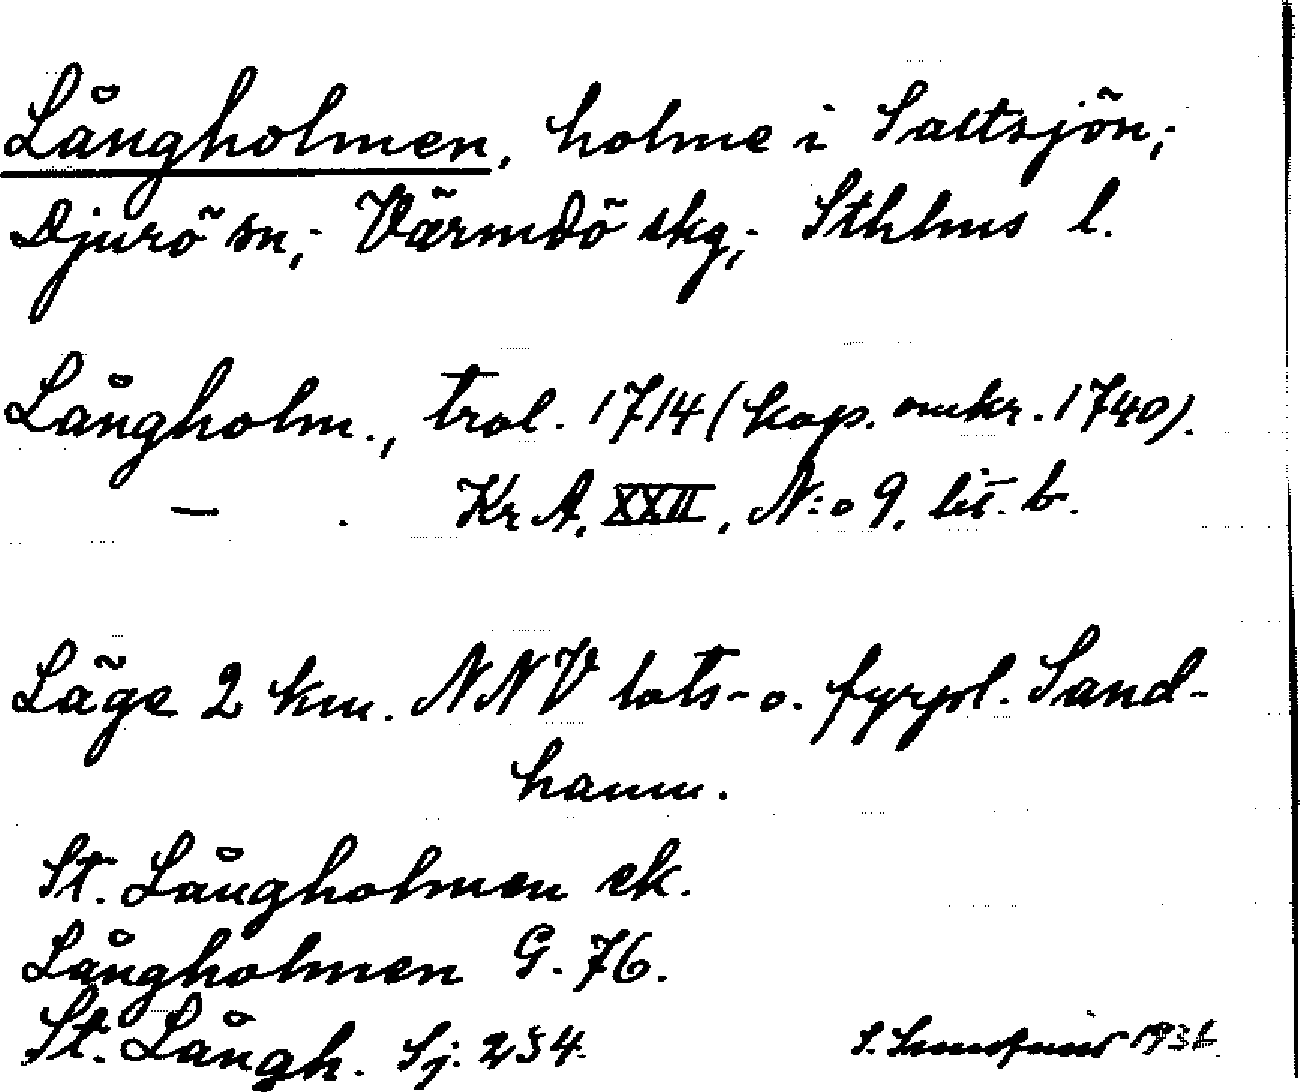 Långholmen, holme i Saltsjön;
Djurö sn; Värmdö skg; Sthlms l.
Långholm., trol. 1714 (kop. omkr. 1740).
— . Kr A. XXII, N:o 9. lit. b.
Läge 2 km. NNV lots- o. fyrpl. Sand-
hamn.
St. Långholmen ek.
Långholmen G. 76.
St. Långh. Sj. 234.
S.